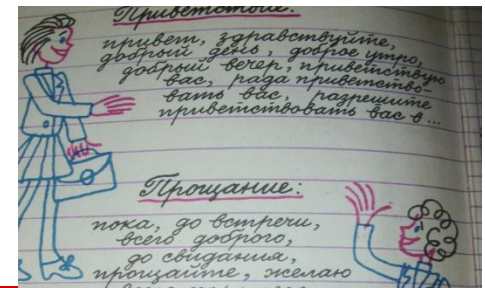 Приветствие:
привет, здравствуйте,
добрый день, доброе утро,
добрый вечер, приветствую
вас, рада приветство-
вать вас, разрешите
приветствовать вас в...
Прощание:
пока, до встречи,
всего доброго,
до свидания,
прощайте, желаю